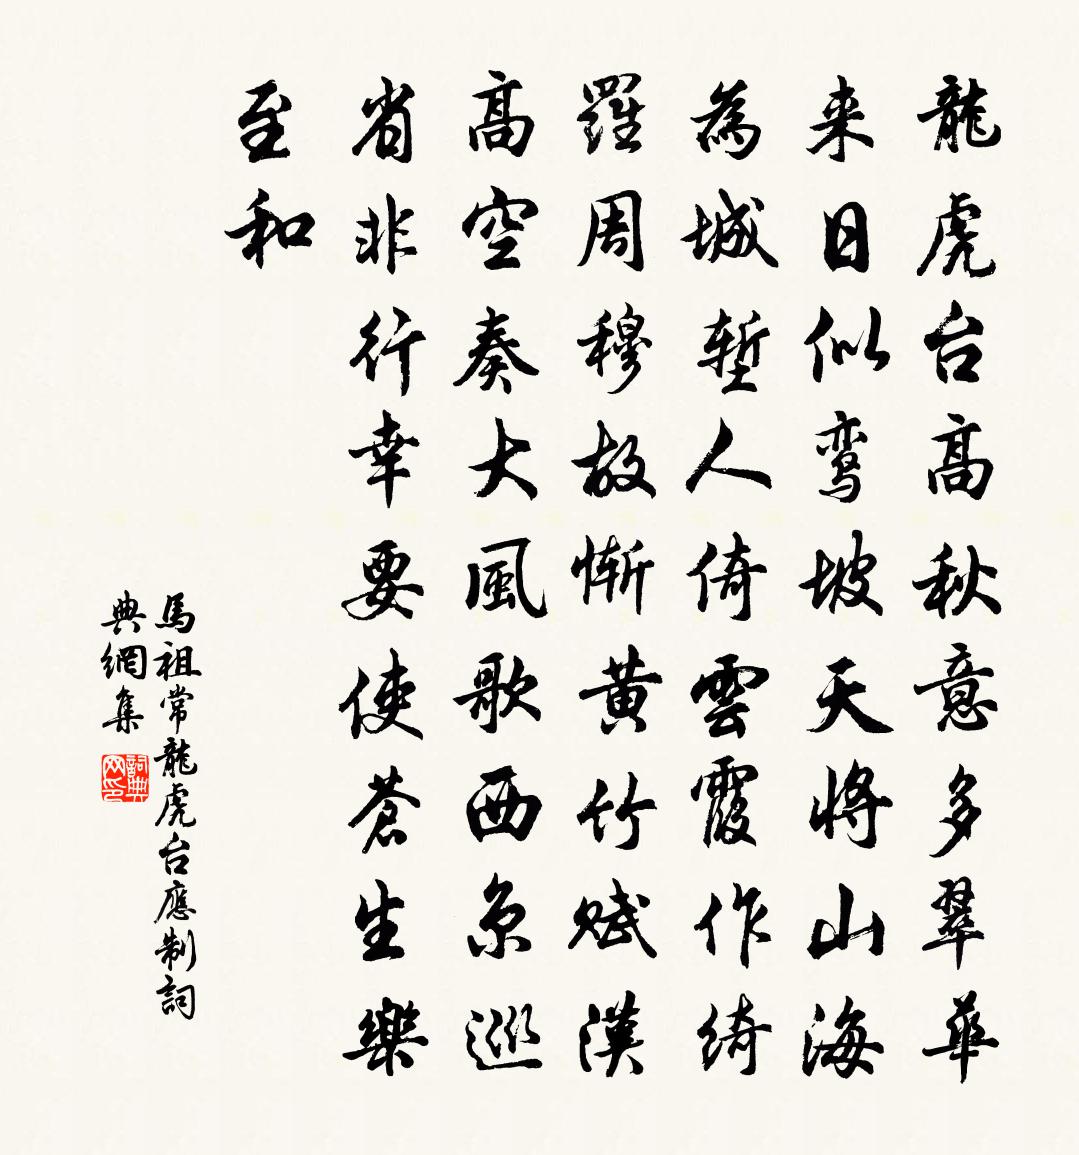 龍虎台高秋意多翠華
来日似鸾坡天将山海
為城塹人倚雲霞作綺
羅周穆故慚黄竹赋漢
高空奏大風歌西京巡
省非行幸要使蒼生樂
至和
馬祖常龍虎台應制詞
典網集
詞典网印